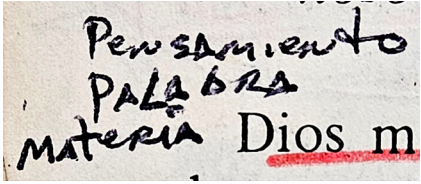 Pensamiento
PALABRA
MATERIA Dios m